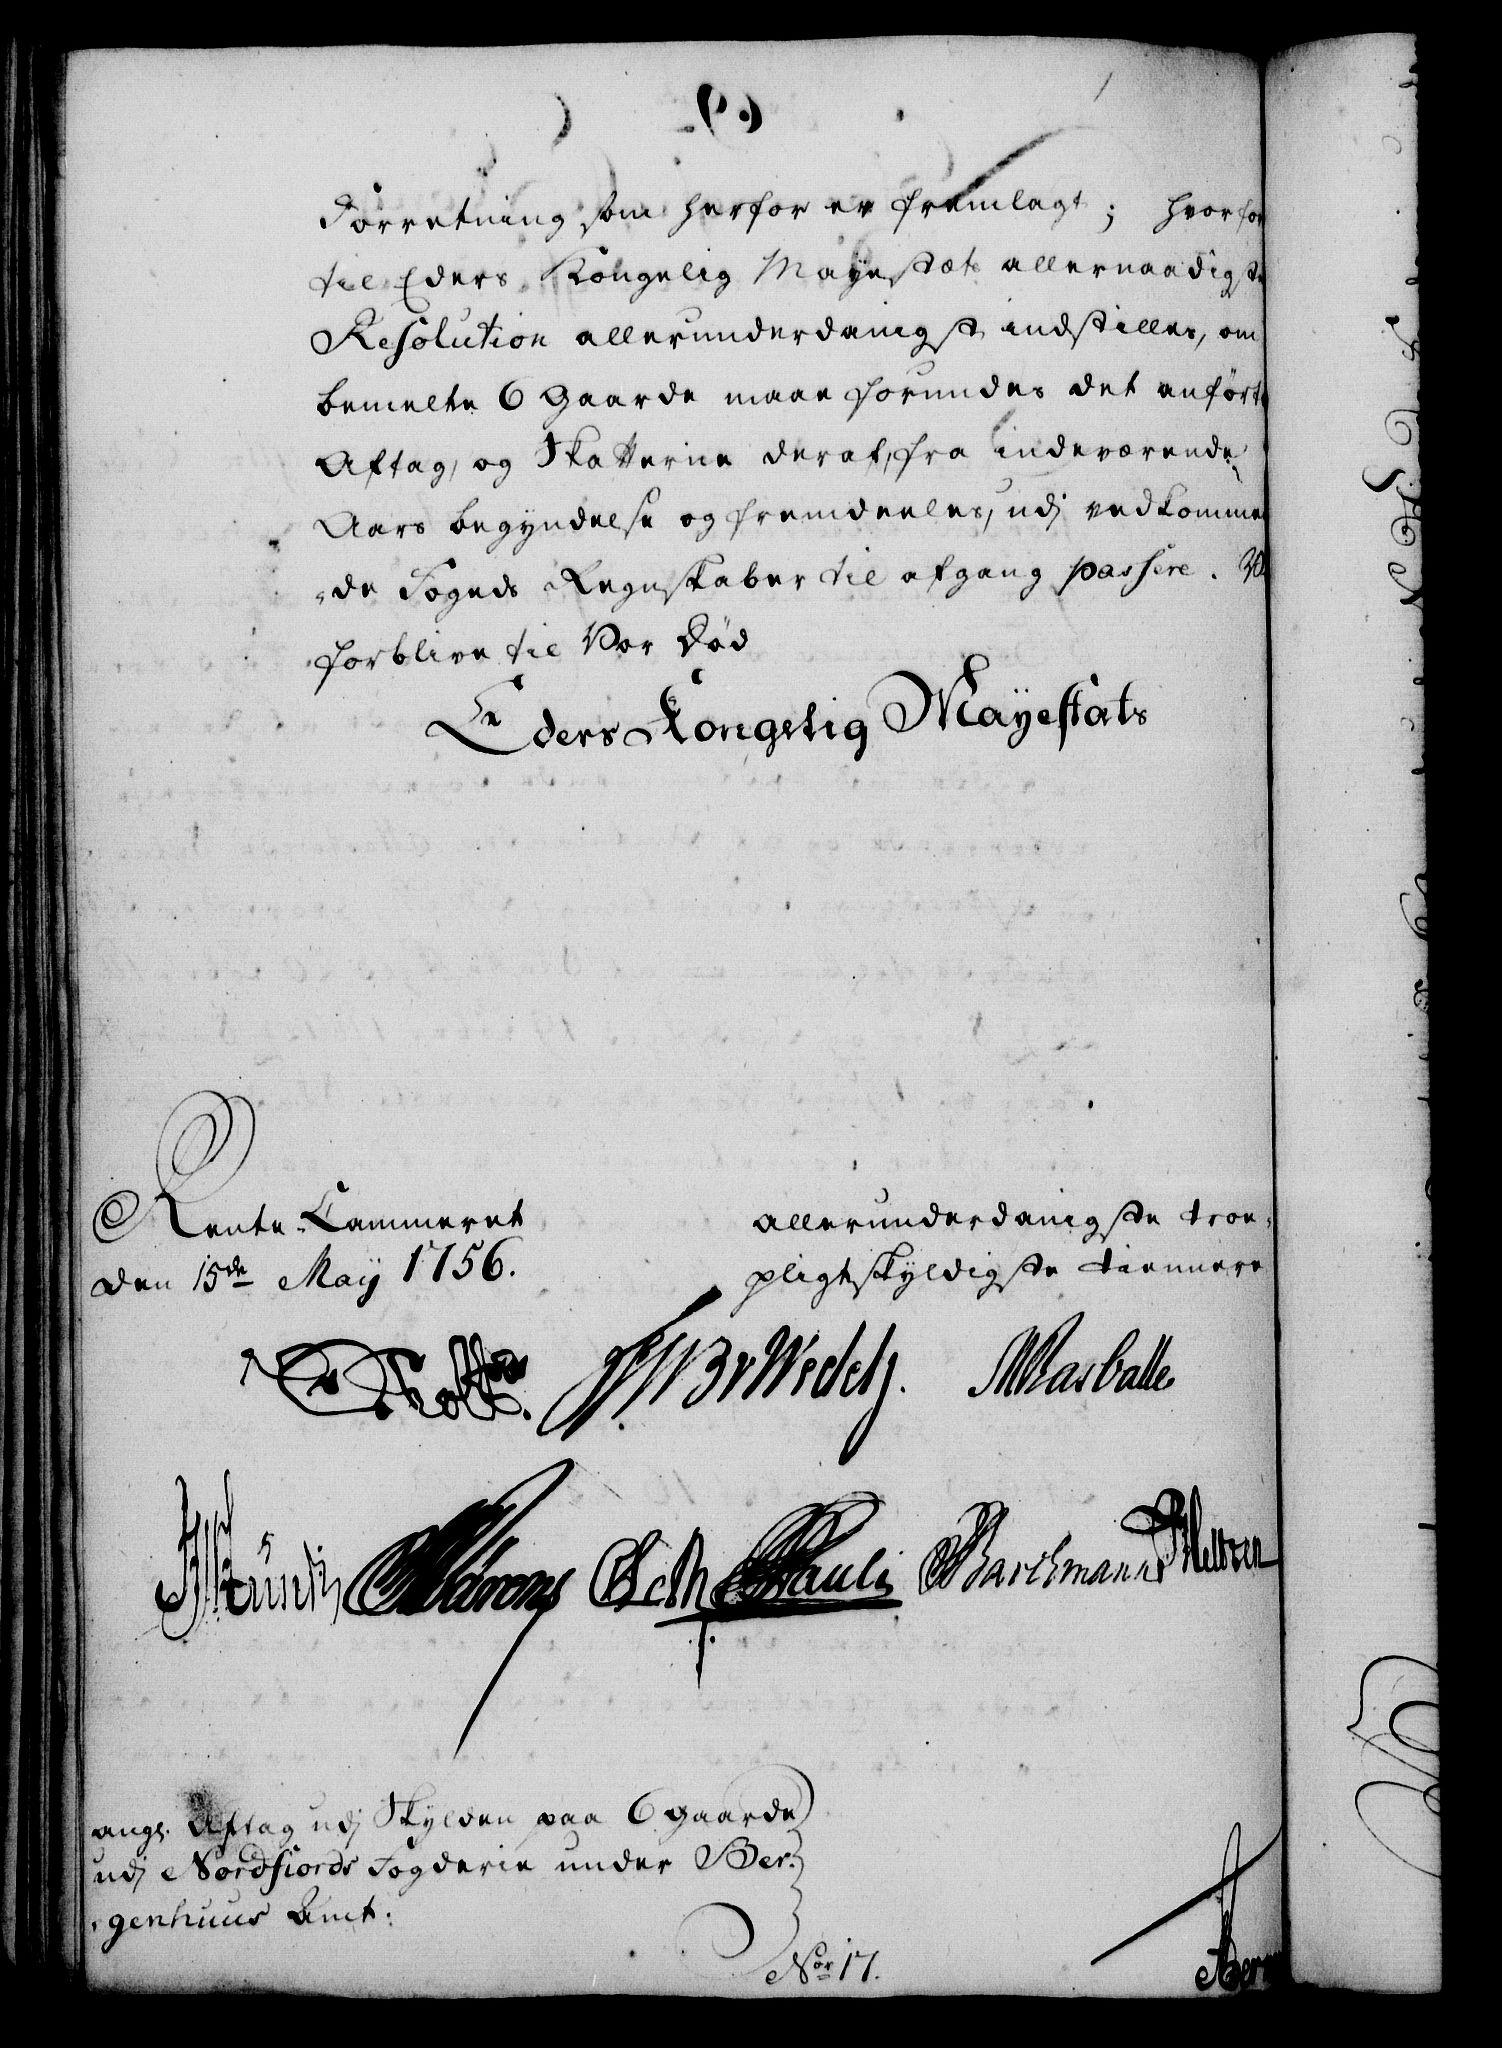 Forretning som herfor er fremlagt; hvorfor
til Eders Kongelig Mayestæts allernaadigste
Resolution allerunderdanigst indstilles, om
bemelte 6 Gaarde maae forundes det anførte
Aftag, og Skatterne deraf, fra indeværende
Aars begyndelse og fremdeeles, udj vedkommen
de Fogeds Regnskaber til afgang passere. Vi
forblive til Vor Død
Eders Kongelig Mayestats
Rente-Cammeret
den 15de May 1756.
allerunderdanigste troe-
pligtskyldigste tiennere
Holst.
Wedel.
Kundz
Beth Pauli Barchmann
ang. Aftag udj Skylden paa 6 gaarde
udj Nordfiords Fogderie under Ber-
genhuus Amt:
Nor 17.